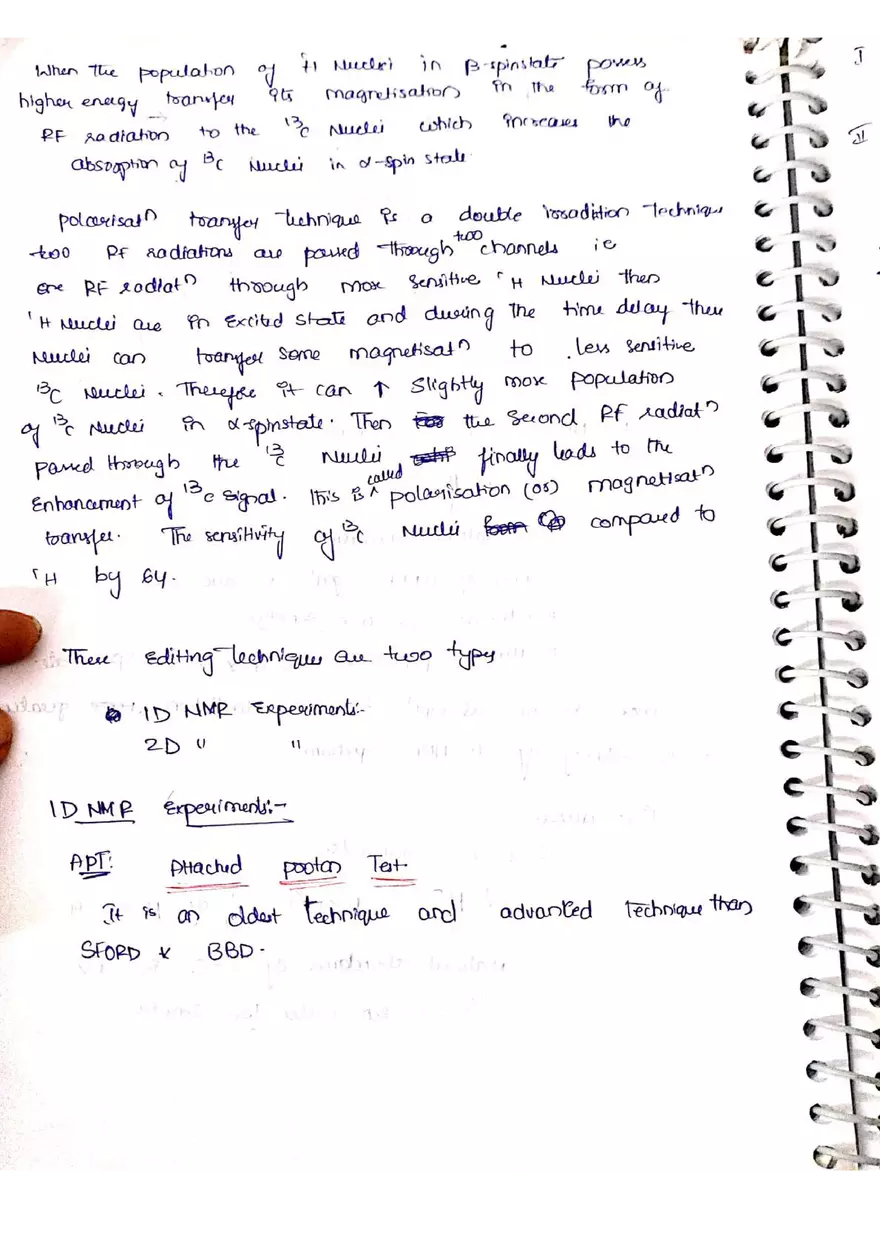 When the population of ¹H Nuclei in β-spinstate posses
higher energy transfer its magnetisation in the form of
RF radiation to the ¹³C Nuclei which increases the
absorption of ¹³C Nuclei in α-spin state.
polarisatn transfer technique is a double irradiation Technique
two Rf radiations are passed through two channels ie
one RF radiatn through more sensitive ¹H Nuclei then
¹H Nuclei are in excited state and during the time delay these
Nuclei can transfer some magnetisatn to less sensitive
¹³C Nuclei. Therefore it can ↑ slightly more population
of ¹³C Nuclei in α-spinstate. Then the second Rf radiatn
passed through the ¹³C Nuclei finally leads to the
Enhancement of ¹³C signal. This is called polarisation (or) magnetisatn
transfer. The sensitivity of ¹³C Nuclei compared to
¹H by 64.
These editing techniques are two types
1D NMR Experiments:-
2D " "
1D NMR Experiments:-
APT: Attached proton Test
It is an oldest technique and advanced technique than
SFORD & BBD.
I
II